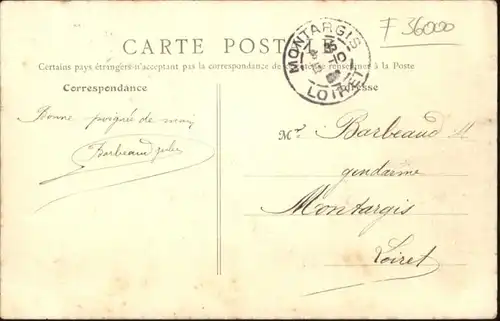 F 36000
CARTE POST
Certains pays étrangers n'acceptant pas la correspondance de renseigner à la Poste
Correspondance
MONTARGIS
LOIRET
Bonne poignée de main
Barbeaud Jules
Mr Barbeaud M
gendarme
Montargis
Loiret